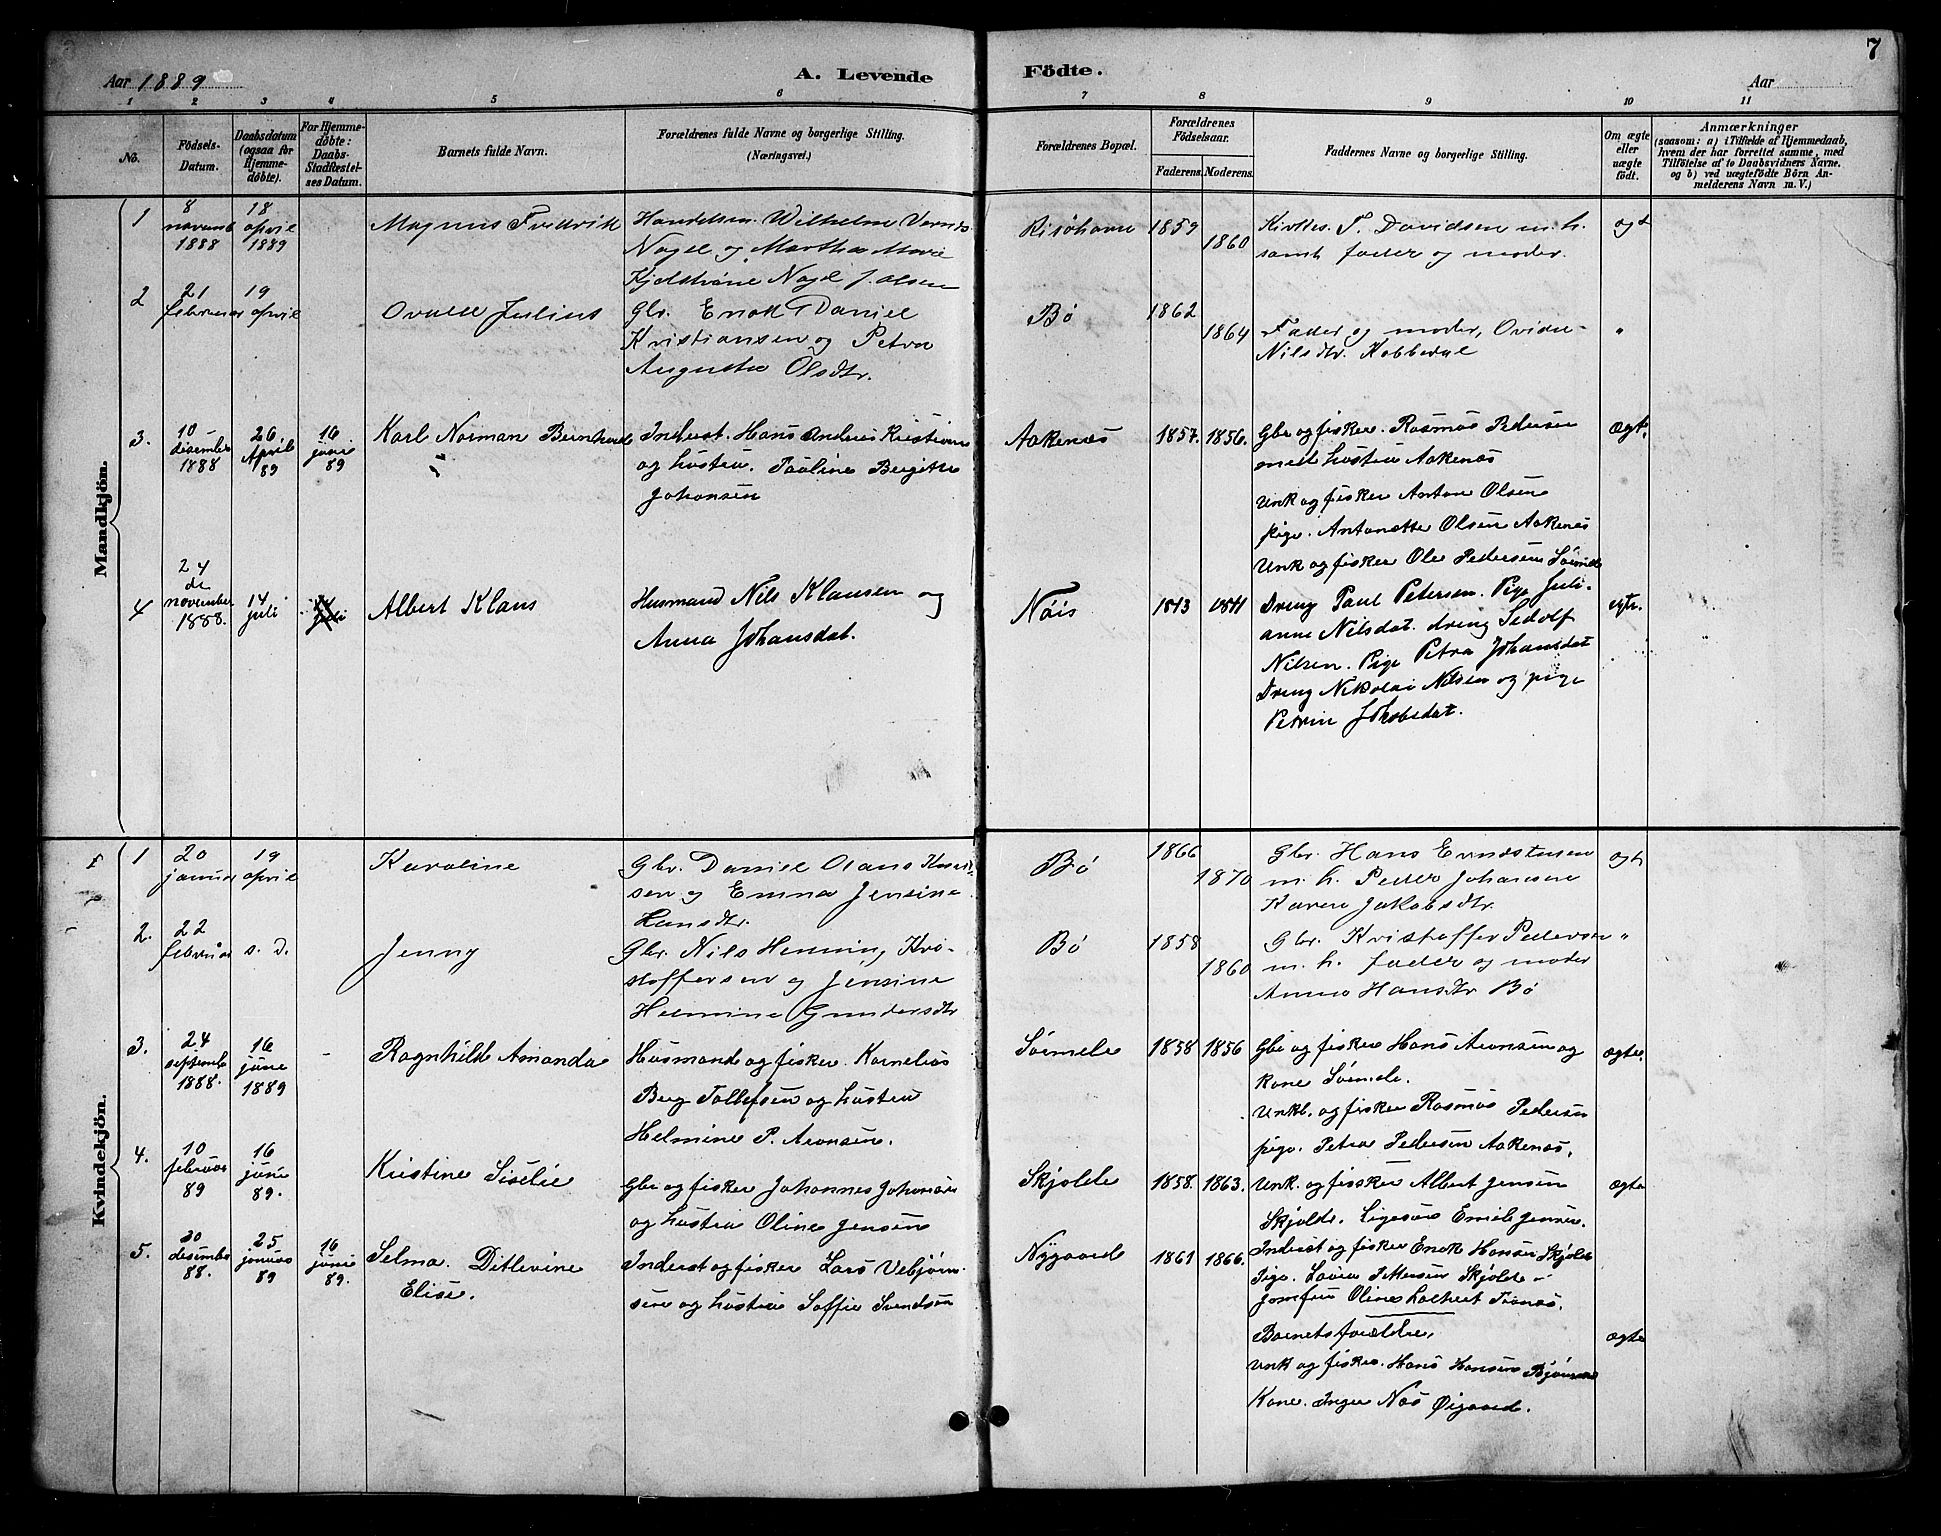 7
Aar 1889
A. Levende Födte.
Aar
1 2 3 4 5 6 7 8 9 10 11
No.
Födsels-
Datum.
Daabsdatum
(ogsaa for
Hjemme-
döbte).
For Hjemme-
döbte:
Daabs-
Stadfæstel-
ses Datum.
Barnets fulde Navn.
Forældrenes fulde Navne og borgerlige Stilling.
(Næringsvei.)
Forældrenes Bopæl.
Forældrenes
Födselsaar.
Faderens. Moderens.
Faddernes Navne og borgerlige Stilling.
Om ægte
eller
uægte
födt.
Anmærkninger
(saasom: a) i Tilfælde af Hjemmedaab,
hvem der har forrettet samme, med
Tilföielse af to Daabsvidners Navne.
og b) ved uægtefödte Börn An-
melderens Navn m. V.)
Mandkjön.
1
8
novemb
1888
18
april
1889
Magnus Fredrik
Handelsm. Wilhelm
Nagel og Martha Marie
Nagel f. Olsen
Risøhavn
1859
1860
Kirkes. T. Davidsen m. h.
samt fader og moder.
ægt
2
21
februar
19
april
Julius
Gbr. Enok Daniel
Kristiansen og Petra
Augusta Olsdtr.
Bø
1862
1864
Fader og moder,
Nilsdtr. Kobbedal
"
3.
10
desember
1888
26
April
89
16
juni
89
Karl Norman Bernhard
Inderst. Hans Anders Kristians
og hustru. Pauline Bergitte
Johansen
Aakenæs
1857. 1856.
Gbr og fisker. Rasmus Pedersen
med hustru Aakenæs
Unk og fisker Anton Olsen
pige. Antonette Olsen Aakenæs
Unk og fisker Ole Pedersen Sørmele
ægte
4
24
de
november
1888.
14
juli
juli
Albert Klaus
Husmand Nils Klausen og
Anna Johansdat.
Nøis
1843 1841
Dreng Paul Petersen. Pige Juli-
anne Nilsdat. dreng Sedolf
Nilsen. Pige Petra Johansdat
Dreng Nikolai Nilsen og pige
Petrin
egte.
Kvindekjön.
1
20
januar
19
april
Karoline
Gbr. Daniel Olaus
sen og Emma Jensine
Hansdtr.
Bø
1866
1870
Gbr. Hans Evensen
m. h. Peder Johansen
Karen Jakobsdtr.
ægte
2.
22
februar
s. d.
Jenny
Gbr. Nils Henning Kri-
stoffersen og Jensine
Helmine Gundersdtr
Bø
1858
1860
Gbr. Kristoffer Pedersen
m. h. fader og moder
Anna Hansdtr Bø
"
3.
24
septembr
1888.
16
june
1889
-
Ragnhilde Amanda
Husmand og fisker. Kornelius
Berg Tollefsen og hustru
Helmine P. Aronsen.
Sørmele
1858 1856
Gbr og fisker Hans Aronsen og
kone Sørmele.
Unkl. og fisker Rasmus Pedersen
pige. Petra Pedersen Aakenæs.
ægte.
4.
10
februar
89
16
june
89.
Kristine Siselie
Gbr og fisker Johannes Johansen
og hustru Oline Jensen
Skjolde
1858. 1863.
Unk. og fisker Albert Jensen
Skjolde. Ligesaa Emil Jensen.
Inderst og fisker Enok Hansen Skjolde
Pige. Skjolde
Jomfru Oline
ægte
5.
30
desembr
88.
25
januar
89
16
june
89.
Selma. Ditlevine
Elise.
Inderst og fisker Lars Vebjørn-
sen og hustru Soffie Svendsen
Nygaard
1861 1866.
Barnets forældre.
Unk og fisker. Hans Hansen
Kone. Inger Øigaard.
ægte